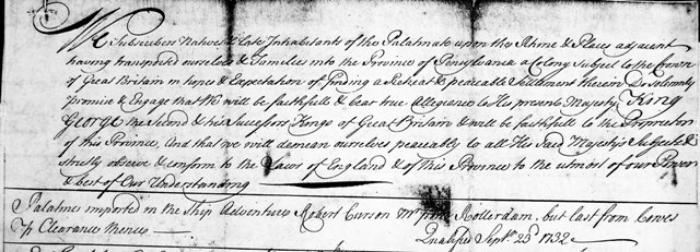 We Subscribers Natives & late Inhabitants of the Palatinate upon the Rhine & Places adjacent
having transported ourselves & Families into the Province of Pensylvania a Colony Subject to the Crown
of Great Britain in hopes & Expectation of finding a Retreat & peaceable Settlement therein Do Solemnly
promise & Engage that We will be faithfull & bear true Allegiance to His present Majesty King
George the Second & his Successors Kings of Great Britain & will be faithfull to the Proprietor
of this Province, And that we will demean ourselves peaceably to all His Said Majesty's Subjects &
strictly observe & conform to the Laws of England & of this Province to the utmost of our Power
& best of Our Understanding
Palatines imported in the Ship Adventure Robert Curson Mr from Rotterdam, but last from Cowes
p Clearance thence
Qualified Septr. 23d 1732